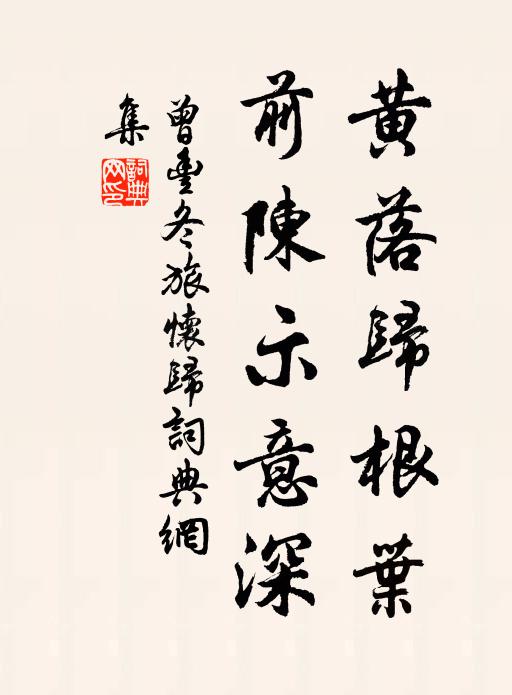 黃落歸根葉
前陳示意深
曾豐冬旅懷歸詞典網
集
詞典
網印